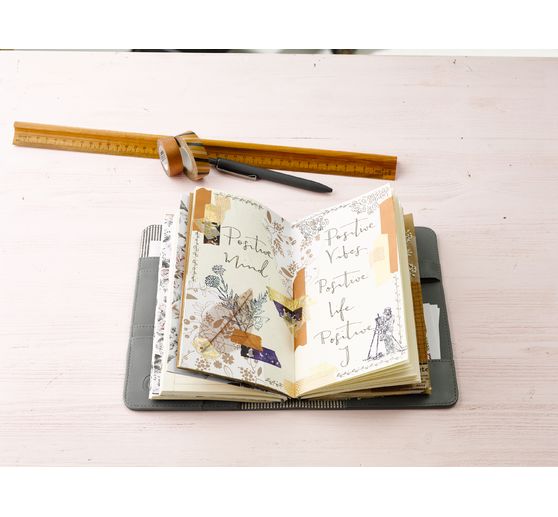 Positive
Mind
Positive
Vibes
Positive
Life
Positive
J